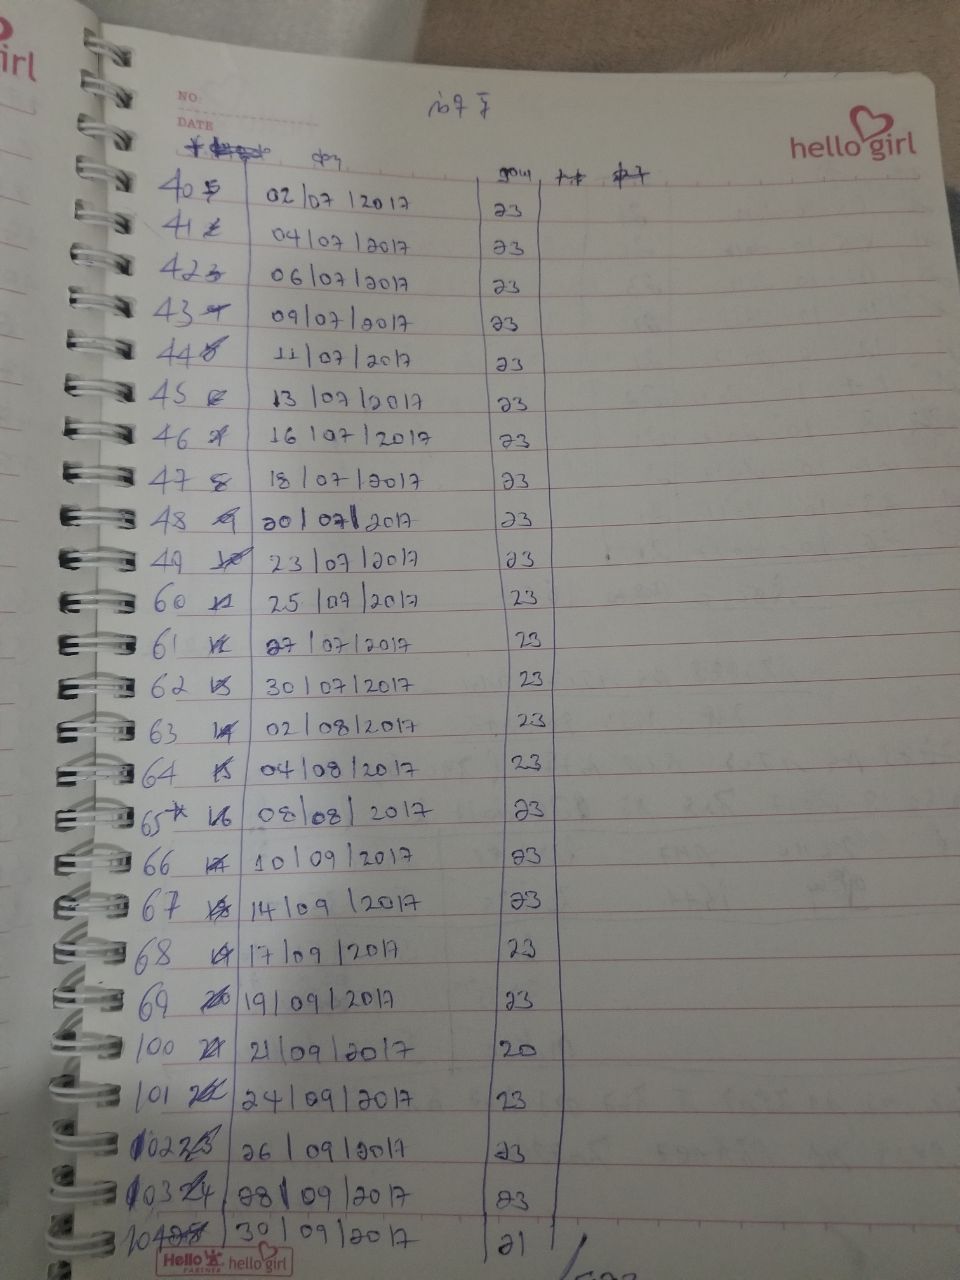 irl
NO.
DATE
hello girl
40 02/07/2017 23
41 04/07/2017 23
42 06/07/2017 23
43 09/07/2017 23
44 11/07/2017 23
45 13/07/2017 23
46 16/07/2017 23
47 18/07/2017 23
48 20/07/2017 23
49 23/07/2017 23
60 25/07/2017 23
61 27/07/2017 23
62 30/07/2017 23
63 02/08/2017 23
64 04/08/2017 23
65 08/08/2017 23
66 10/09/2017 23
67 14/09/2017 23
68 17/09/2017 23
69 19/09/2017 23
100 21/09/2017 20
101 24/09/2017 23
102 26/09/2017 23
103 28/09/2017 23
104 30/09/2017 21
Hello PARTNER hello girl